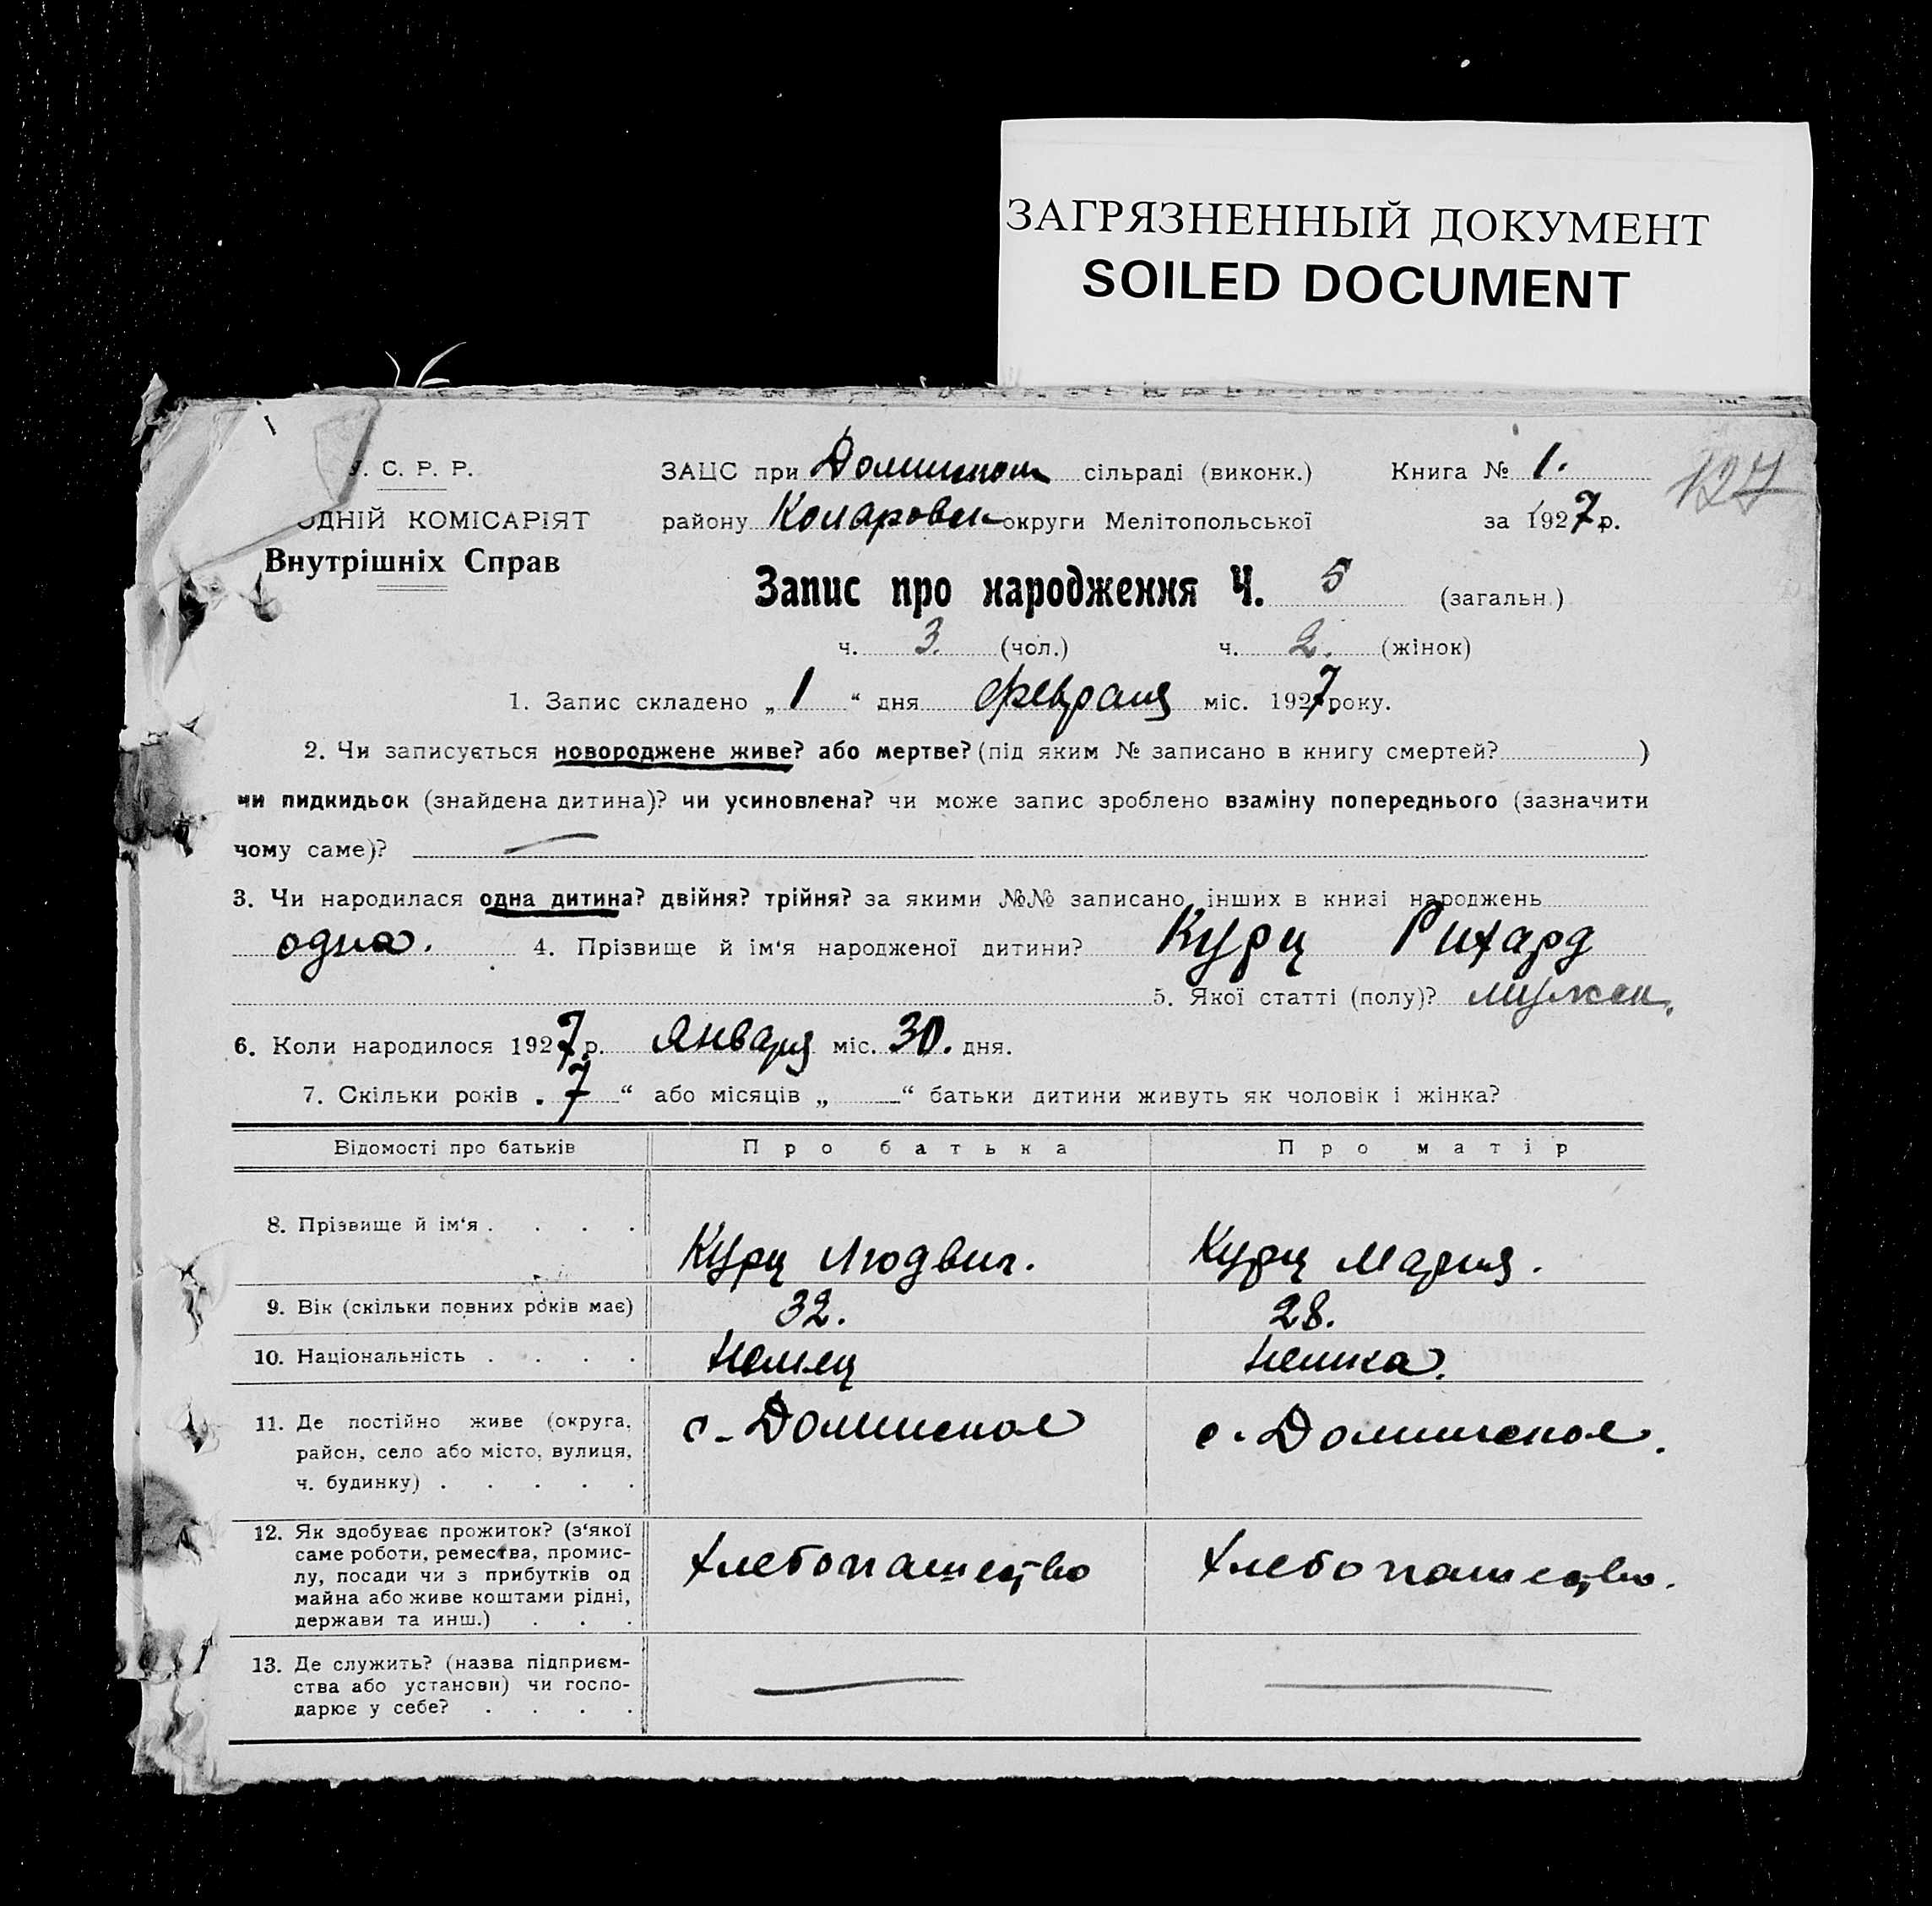 ЗАГРЯЗНЕННЫЙ ДОКУМЕНТ
SOILED DOCUMENT
У. С. Р. Р.
ОДНІЙ КОМІСАРІЯТ
Внутрішніх Справ
ЗАЦС при сільраді (виконк.) Книга № 1. 127
району Коларовск округи Мелітопольської за 1927 р.
Запис про народження Ч. 5 (загальн.)
ч. 3. (чол.) ч. 2. (жінок)
1. Запис складено „ 1 “ дня февраля міс. 1927 року.
2. Чи записується новороджене живе? або мертве? (під яким № записано в книгу смертей? )
чи пидкидьок (знайдена дитина)? чи усиновлена? чи може запис зроблено взаміну попереднього (зазначити
чому саме)? —
3. Чи народилася одна дитина? двійня? трійня? за якими №№ записано інших в книзі народжень
одна. 4. Прізвище й ім‘я народженої дитини? Курц Рихард
5. Якої статті (полу)? мужск.
6. Коли народилося 1927 р. Января міс. 30. дня.
7. Скільки років „ 7 “ або місяців „ — “ батьки дитини живуть як чоловік і жінка?
Відомості про батьків Про батька Про матір
8. Прізвище й ім‘я . . . . Курц Людвиг. Курц Мария.
9. Вік (скільки повних років має) 32. 28.
10. Національність . . . . Немец Немка.
11. Де постійно живе (округа,
район, село або місто, вулиця,
ч. будинку) . . . . .
с.
с.
12. Як здобуває прожиток? (з‘якої
саме роботи, ремества, промис-
лу, посади чи з прибутків од
майна або живе коштами рідні,
держави та инш.) . . .
Хлебопашество Хлебопашество.
13. Де служить? (назва підприєм-
ства або установи) чи госпо-
дарює у себе? . . . .
— —